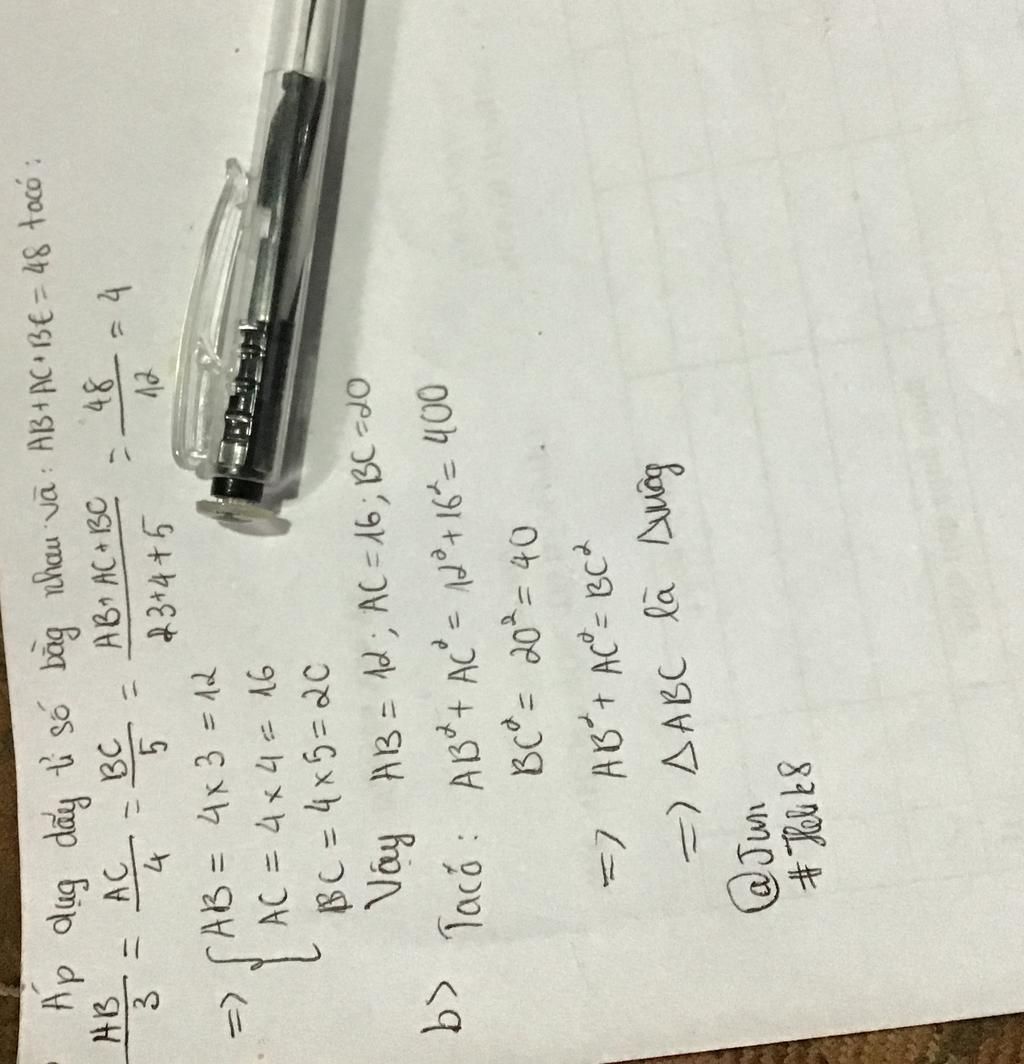 Áp dụg dãy tỉ số bằg nhau và: AB+AC+BC=48 tacó:
AB/3 = AC/4 = BC/5 = AB+AC+BC/3+4+5 = 48/12 = 4
=> { AB = 4x3 = 12
AC = 4x4 = 16
BC = 4x5 = 20
Vậy AB = 12; AC = 16; BC = 20
b> Tacó: AB² + AC² = 12² + 16² = 400
BC² = 20² = 40
=> AB² + AC² = BC²
=> △ABC là △vuôg
@Jun
#Helik8